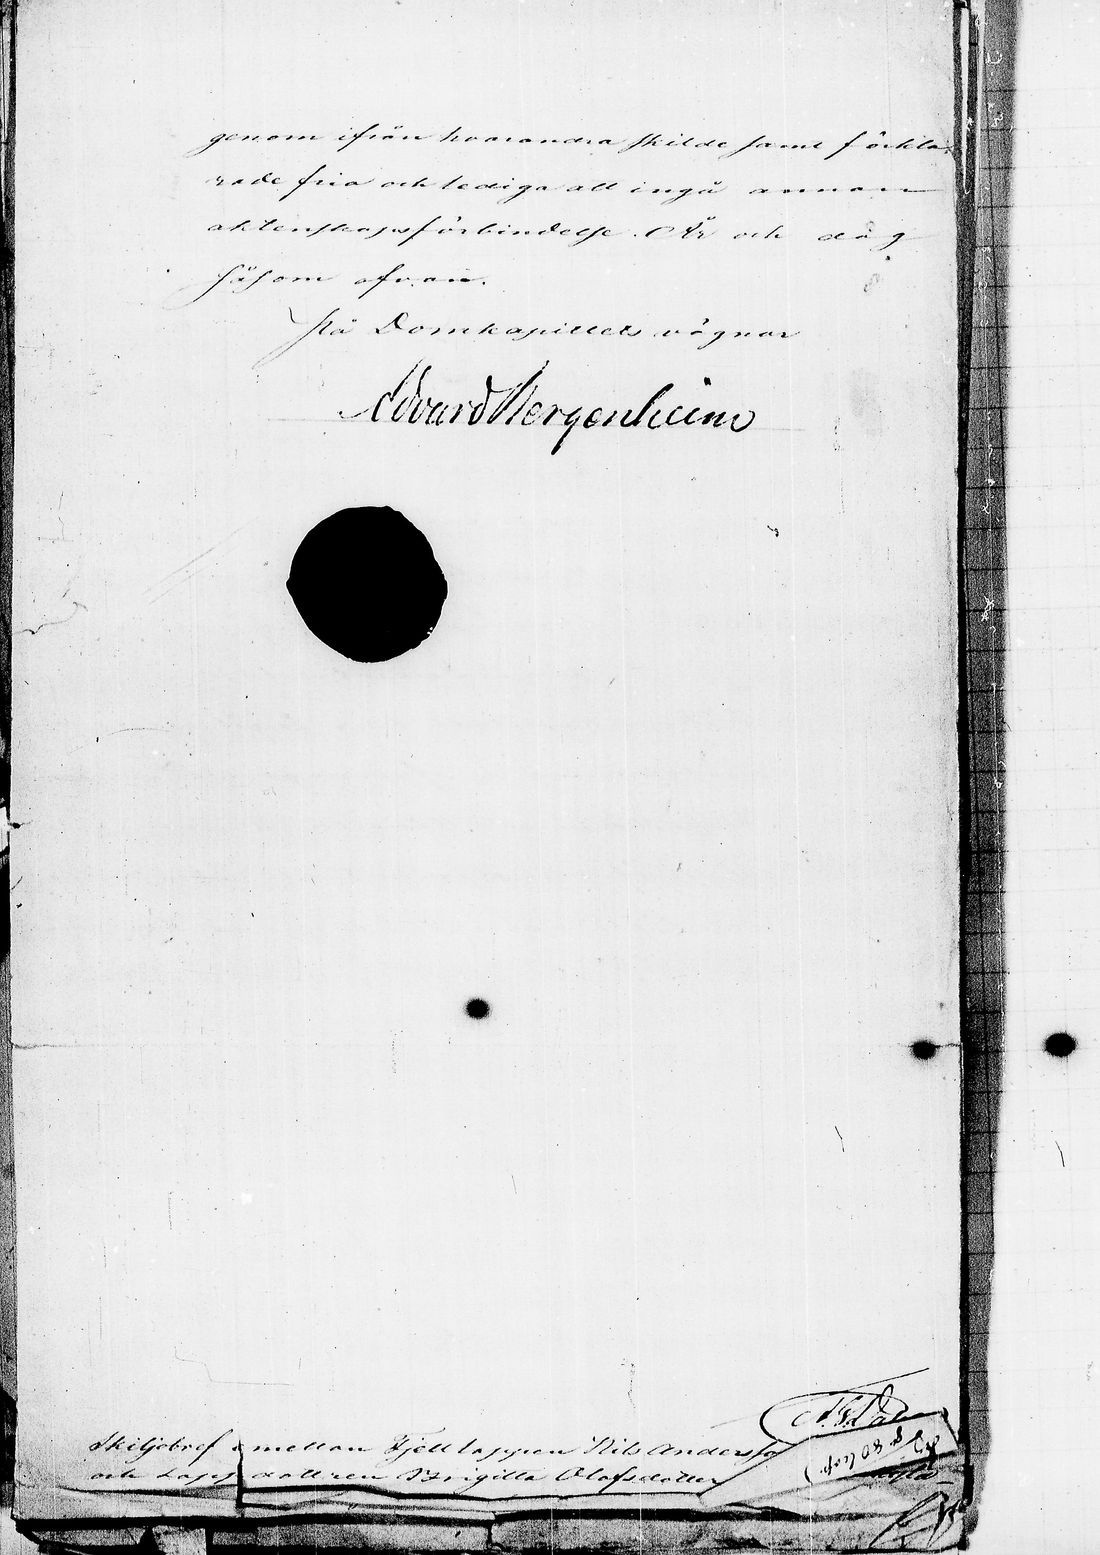 genom ifrån hvarandra skilde samt förkla-
rade fria och lediga att ingå annan
äktenskapsförbindelse. År och dag
såsom ofvan.
På Domkapitlets vägnar
Edvard Bergenheim
Skiljobref emellan Fjell lappen Nils Andersson
och Lapp dottren Brigitta Olofsdotter